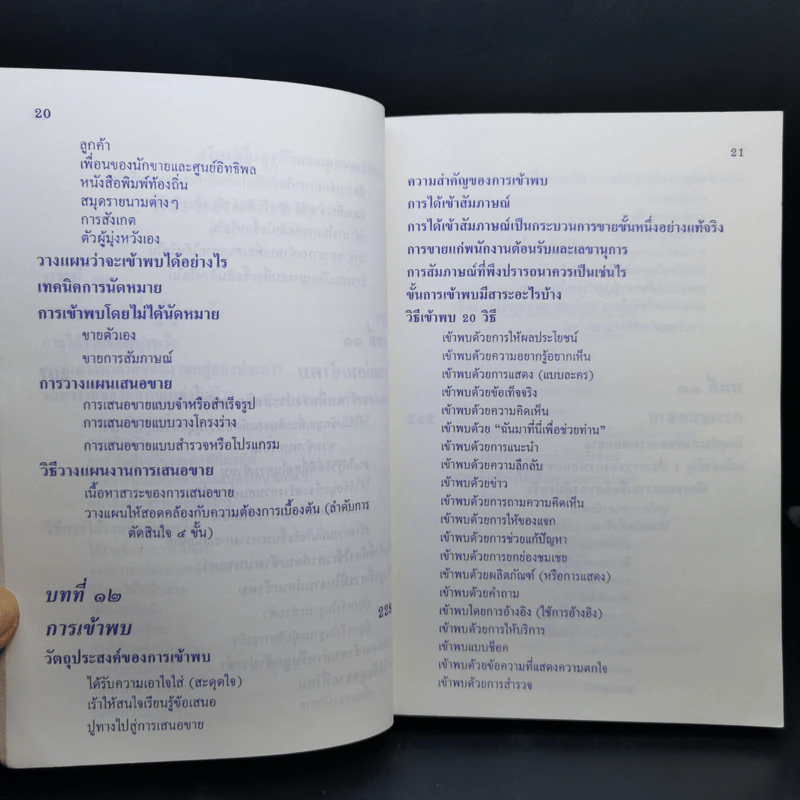 20
ลูกค้า
เพื่อนของนักขายและศูนย์อิทธิพล
หนังสือพิมพ์ท้องถิ่น
สมุดรายนามต่างๆ
การสังเกต
ตัวผู้มุ่งหวังเอง
วางแผนว่าจะเข้าพบได้อย่างไร
เทคนิคการนัดหมาย
การเข้าพบโดยไม่ได้นัดหมาย
ขายตัวเอง
ขายการสัมภาษณ์
การวางแผนเสนอขาย
การเสนอขายแบบจำหรือสำเร็จรูป
การเสนอขายแบบวางโครงร่าง
การเสนอขายแบบสำรวจหรือโปรแกรม
วิธีวางแผนงานการเสนอขาย
เนื้อหาสาระของการเสนอขาย
วางแผนให้สอดคล้องกับความต้องการเบื้องต้น (ลำดับการ
ตัดสินใจ ๔ ขั้น)
บทที่ ๑๒
การเข้าพบ
วัตถุประสงค์ของการเข้าพบ
ได้รับความเอาใจใส่ (สะดุดใจ)
เร้าให้สนใจเรียนรู้ข้อเสนอ
ปูทางไปสู่การเสนอขาย
21
ความสำคัญของการเข้าพบ
การได้เข้าสัมภาษณ์
การได้เข้าสัมภาษณ์เป็นกระบวนการขายขั้นหนึ่งอย่างแท้จริง
การขายแก่พนักงานต้อนรับและเลขานุการ
การสัมภาษณ์ที่พึงปรารถนาควรเป็นเช่นไร
ขั้นการเข้าพบมีสาระอะไรบ้าง
วิธีเข้าพบ 20 วิธี
เข้าพบด้วยการให้ผลประโยชน์
เข้าพบด้วยความอยากรู้อยากเห็น
เข้าพบด้วยการแสดง (แบบละคร)
เข้าพบด้วยข้อเท็จจริง
เข้าพบด้วยความคิดเห็น
เข้าพบด้วย "ฉันมาที่นี่เพื่อช่วยท่าน"
เข้าพบด้วยการแนะนำ
เข้าพบด้วยความลึกลับ
เข้าพบด้วยข่าว
เข้าพบด้วยการถามความคิดเห็น
เข้าพบด้วยการให้ของแจก
เข้าพบด้วยการช่วยแก้ปัญหา
เข้าพบด้วยการยกย่องชมเชย
เข้าพบด้วยผลิตภัณฑ์ (หรือการแสดง)
เข้าพบด้วยคำถาม
เข้าพบโดยการอ้างอิง (ใช้การอ้างอิง)
เข้าพบด้วยการให้บริการ
เข้าพบแบบช็อค
เข้าพบด้วยข้อความที่แสดงความตกใจ
เข้าพบด้วยการสำรวจ